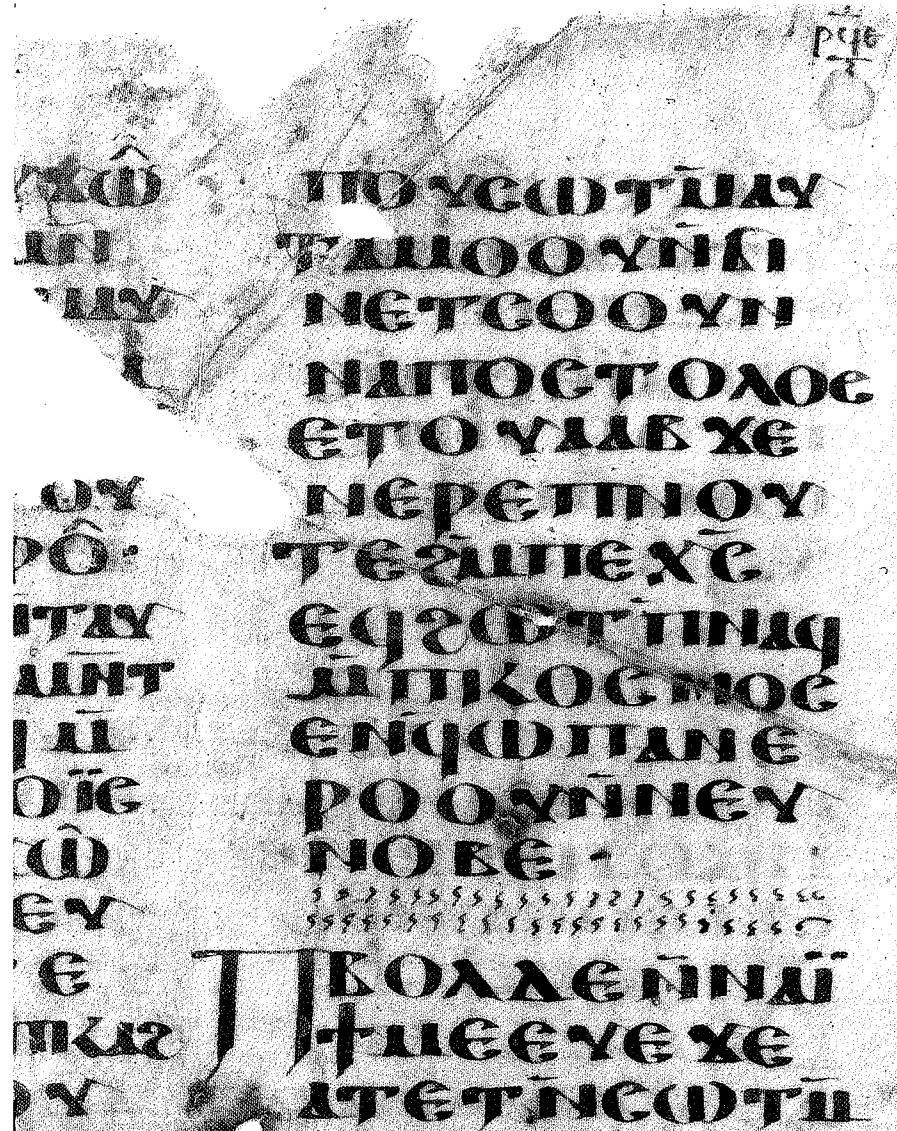 ⲣϥⲉ
ⲕⲱ̂
ⲙⲁⲩ
ⲟⲩ
ⲣⲟ̂·
ⲛⲧⲁⲩ
ⲙⲛ̄ⲧ
ϥⲙ̄
ⲟⲓ̈ⲥ
ⲕⲱ̂
ⲉⲩ
ⲉ
ⲡⲕⲁϩ
ⲟⲩ
ⲡⲟⲩⲥⲱⲧⲙ̄ⲁⲩ
ⲧⲁⲙⲟⲟⲩⲛ̄ϭⲓ
ⲛⲉⲧⲥⲟⲟⲩⲛ
ⲛⲁⲡⲟⲥⲧⲟⲗⲟⲥ
ⲉⲧⲟⲩⲁⲁⲃϫⲉ
ⲛⲉⲣⲉⲡⲛⲟⲩ
ⲧⲉϩⲙ̄ⲡⲉⲭⲥ̄
ⲉϥϩⲱⲧⲡ̄ⲛⲁϥ
ⲙ̄ⲡⲕⲟⲥⲙⲟⲥ
ⲉⲛϥⲱⲡⲁⲛⲉ
ⲣⲟⲟⲩⲛ̄ⲛⲉⲩ
ⲛⲟⲃⲉ·
ⲡⲃⲟⲗⲇⲉⲛ̄ⲛⲁⲓ̈
ϯⲙⲉⲉⲩⲉϫⲉ
ⲁⲧⲉⲧⲛ̄ⲥⲱⲧⲙ̄